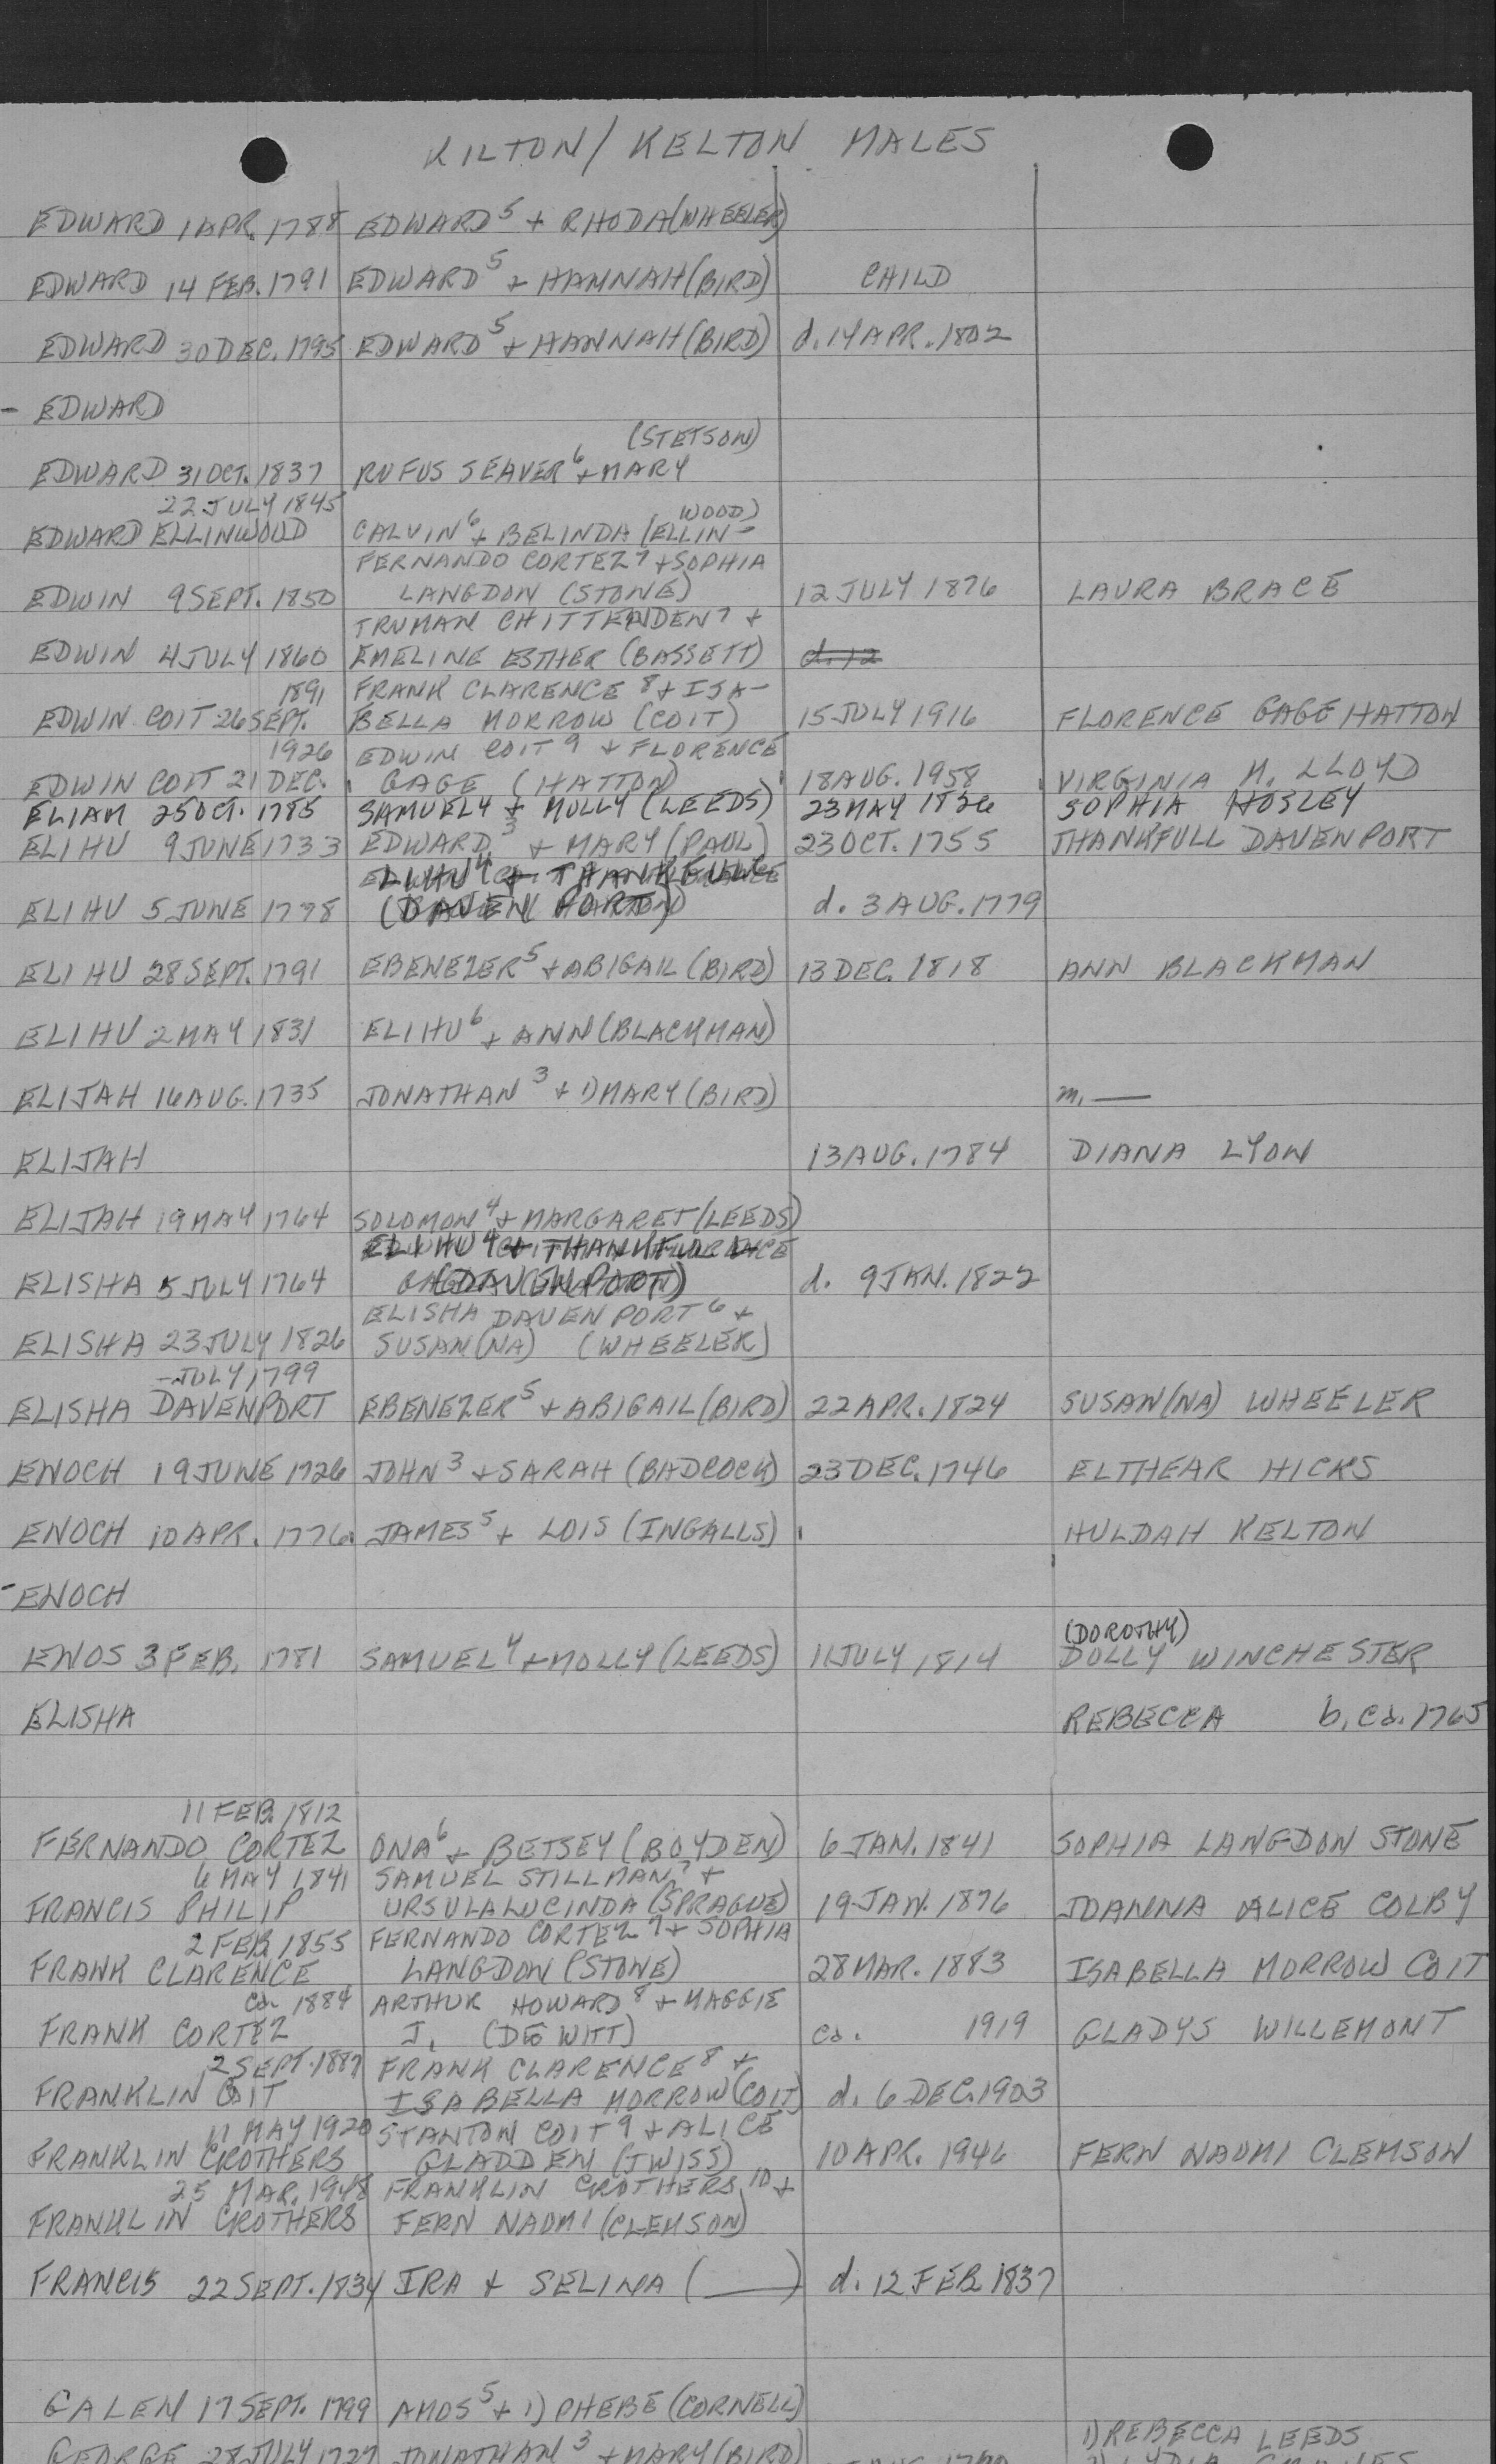 KILTON/KELTON MALES
EDWARD 1 APR. 1788 EDWARD5 + RHODA(WHEELER)
EDWARD 14 FEB. 1791 EDWARD5 + HANNAH(BIRD) CHILD
EDWARD 30 DEC. 1795 EDWARD5 + HANNAH(BIRD) d. 14 APR. 1802
- EDWARD
(STETSON)
EDWARD 31 OCT. 1837 RUFUS SEAVER6 + MARY
22 JULY 1845 WOOD)
EDWARD ELLINWOOD CALVIN6 + BELINDA (ELLIN-
FERNANDO CORTEZ7 + SOPHIA
EDWIN 9 SEPT. 1850 LANGDON (STONE) 12 JULY 1876 LAURA BRACE
TRUMAN CHITTENDEN7 +
EDWIN 4 JULY 1860 EMELINE ESTHER (BASSETT) d. 12
1891 FRANK CLARENCE8 + ISA-
EDWIN COIT 26 SEPT. BELLA MORROW (COIT) 15 JULY 1916 FLORENCE GAGE HATTON
1926 EDWIN COIT9 + FLORENCE
EDWIN COIT 21 DEC. GAGE (HATTON) 18 AUG. 1958 VIRGINIA M. LLOYD
ELIAM 25 OCT. 1785 SAMUEL4 + MOLLY (LEEDS) 23 MAY 1826 SOPHIA HOSLEY
ELIHU 9 JUNE 1733 EDWARD3 + MARY (PAUL) 23 OCT. 1755 THANKFULL DAVENPORT
ELIHU4 + THANKFULL
ELIHU 5 JUNE 1778 (DAVENPORT) d. 3 AUG. 1779
ELIHU 28 SEPT. 1791 EBENEZER5 + ABIGAIL (BIRD) 13 DEC. 1818 ANN BLACKMAN
ELIHU 2 MAY 1831 ELIHU6 + ANN (BLACKMAN)
ELIJAH 16 AUG. 1735 JONATHAN3 + 1) MARY (BIRD) m. —
ELIJAH 13 AUG. 1784 DIANA LYON
ELIJAH 19 MAY 1764 SOLOMON4 + MARGARET (LEEDS)
ELIHU4 + THANKFULL
ELISHA 5 JULY 1764 (DAVENPORT) d. 9 JAN. 1822
ELISHA DAVENPORT6 +
ELISHA 23 JULY 1826 SUSAN(NA) (WHEELER)
- JULY 1799
ELISHA DAVENPORT EBENEZER5 + ABIGAIL (BIRD) 22 APR. 1824 SUSAN(NA) WHEELER
ENOCH 19 JUNE 1726 JOHN3 + SARAH (BADCOCK) 23 DEC. 1746 ELTHEAR HICKS
ENOCH 10 APR. 1776 JAMES5 + LOIS (INGALLS) HULDAH KELTON
- ENOCH
(DOROTHY)
ENOS 3 FEB. 1781 SAMUEL4 + MOLLY (LEEDS) 11 JULY 1814 DOLLY WINCHESTER
ELISHA REBECCA b. ca. 1765
11 FEB. 1812
FERNANDO CORTEZ ONA6 + BETSEY (BOYDEN) 6 JAN. 1841 SOPHIA LANGDON STONE
6 MAY 1841 SAMUEL STILLMAN7 +
FRANCIS PHILIP URSULA LUCINDA (SPRAGUE) 19 JAN. 1876 JOANNA ALICE COLBY
2 FEB 1855 FERNANDO CORTEZ7 + SOPHIA
FRANK CLARENCE LANGDON (STONE) 28 MAR. 1883 ISABELLA MORROW COIT
ca. 1884 ARTHUR HOWARD8 + MAGGIE
FRANK CORTEZ J. (DE WITT) ca. 1919 GLADYS WILLEMONT
2 SEPT. 1887 FRANK CLARENCE8 +
FRANKLIN COIT ISABELLA MORROW (COIT) d. 6 DEC. 1903
11 MAY 1920 STANTON COIT9 + ALICE
FRANKLIN CROTHERS GLADDEN (TWISS) 10 APR. 1946 FERN NAOMI CLEMSON
25 MAR. 1948 FRANKLIN CROTHERS10 +
FRANKLIN CROTHERS FERN NAOMI (CLEMSON)
FRANCIS 22 SEPT. 1834 IRA + SELINA (___) d. 12 FEB 1837
GALEN 17 SEPT. 1799 AMOS5 + 1) PHEBE (CORNELL)
1) REBECCA LEEDS
GEORGE 28 JULY 1727 JONATHAN3 + MARY (BIRD)